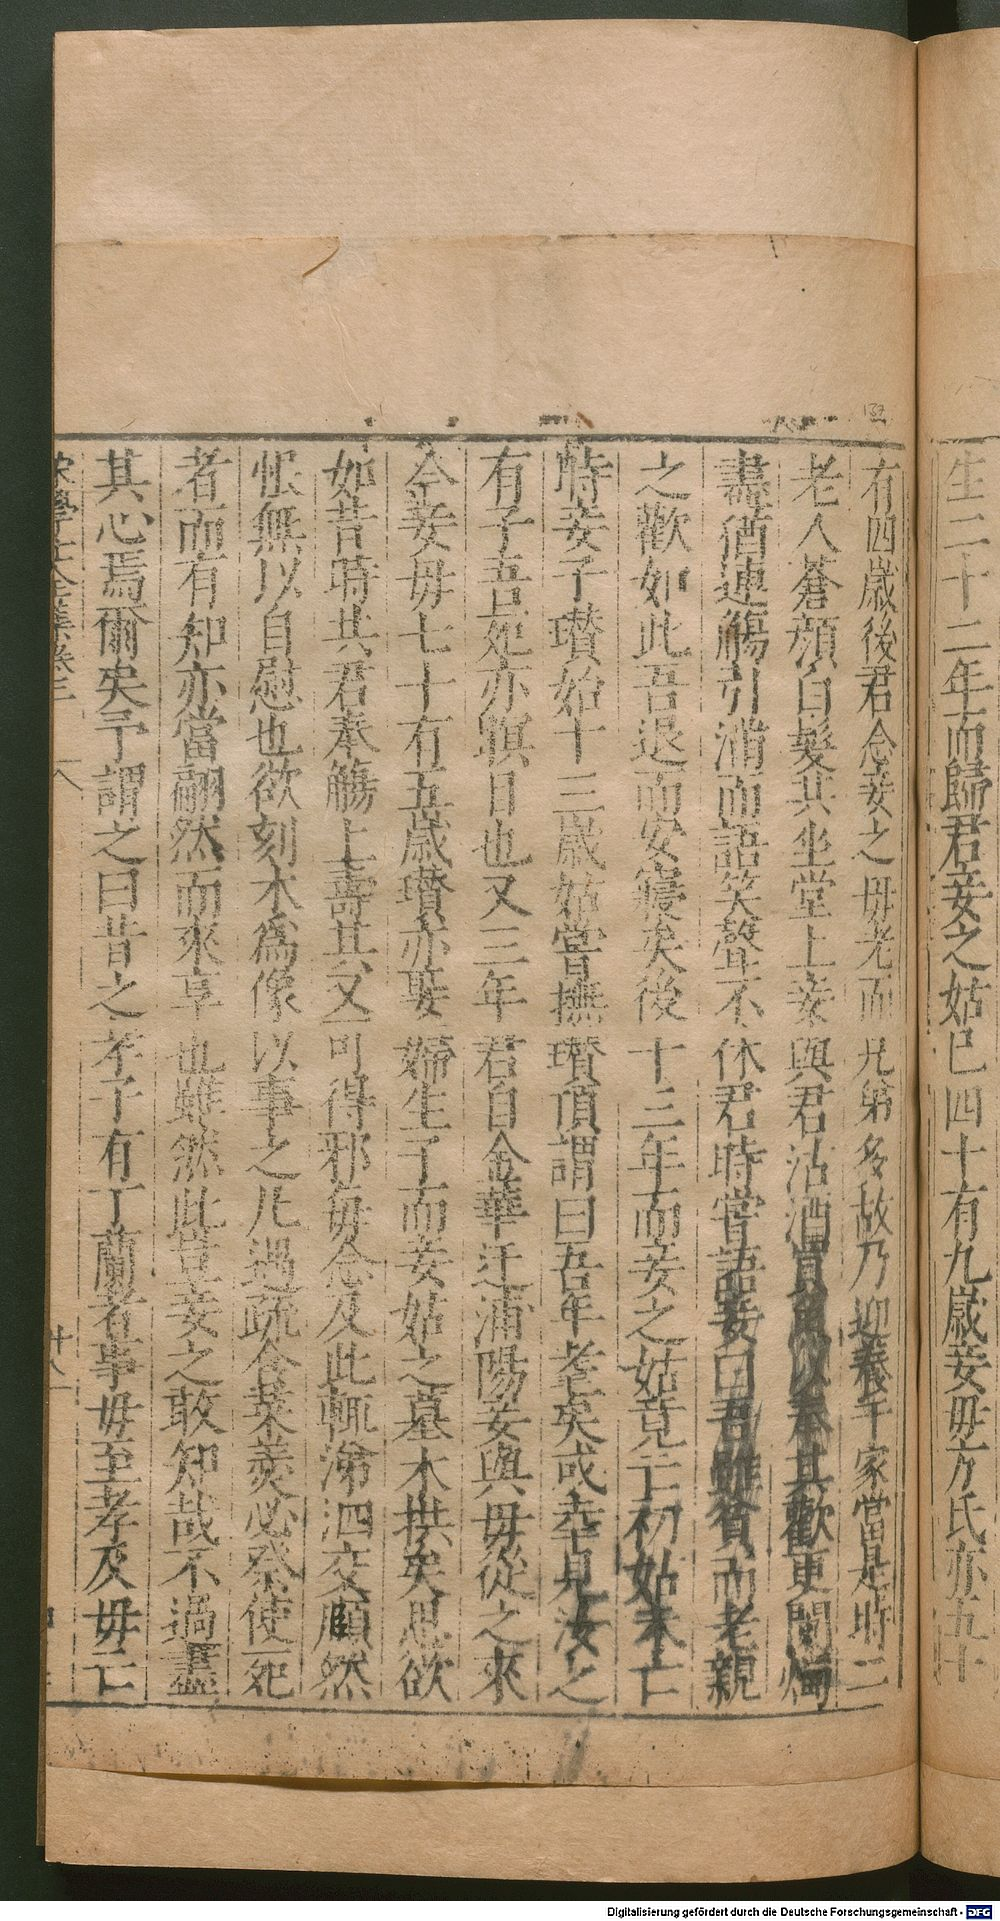 生二十二年而歸君妾之姑巳四十有九歲妾毋方氏亦五十
有四歲後君念妾之毋老而兄弟多故乃迎養于家當是時二
老人蒼顔白髮共坐堂上妾與君沽酒買魚以奉其歡更闌燭
盡猶連觴引滿而語笑聲不休君時嘗語妾曰吾雖貧而老親
之歡如此吾退而安寢矣後十三年而妾之姑竟亡初姑未亡
時妾子瓚始十三歲姑嘗撫瓚頂謂曰吾年耄矣或幸見汝之
有子吾死亦瞑目也又三年君自金華迁浦陽妾與毋從之來
今妾毋七十有五歲瓚亦娶婦生子而妾姑之墓木拱矣思欲
如昔時共君奉觴上壽其又可得邪每念及此輒涕泗交頤然
恨無以自慰也欲刻木爲像以事之凡遇疏食菜羮必祭使死
者而有知亦當翩然而來享也雖然此豈妾之敢知哉不過盡
其心焉爾矣予謂之曰昔之孝子有丁蘭者事毋至孝及毋亡
宋學士全集卷三 八 廿八
Digitalisierung gefördert durch die Deutsche Forschungsgemeinschaft - DFG